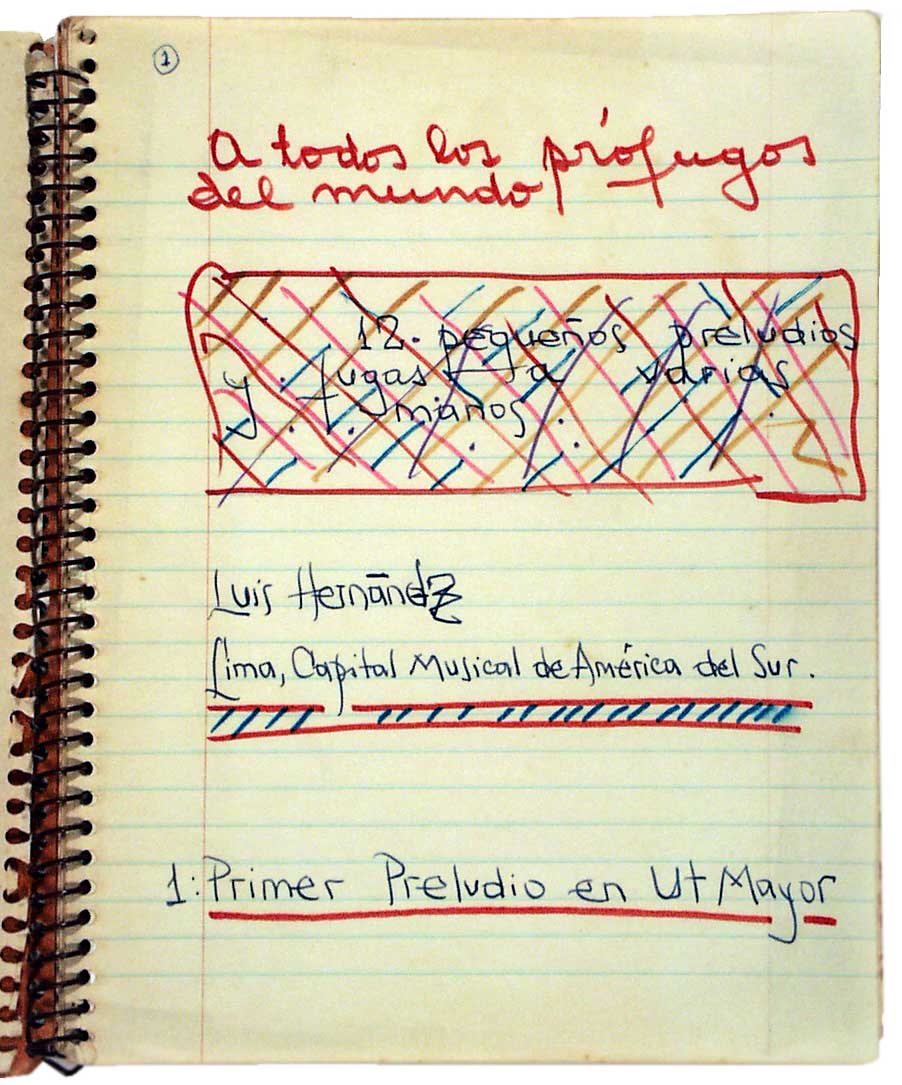 1
A todos los prófugos
del mundo
12. pequeños preludios
y fugas a varias
manos
Luis Hernández
Lima, Capital Musical de América del Sur.
1: Primer Preludio en Ut Mayor